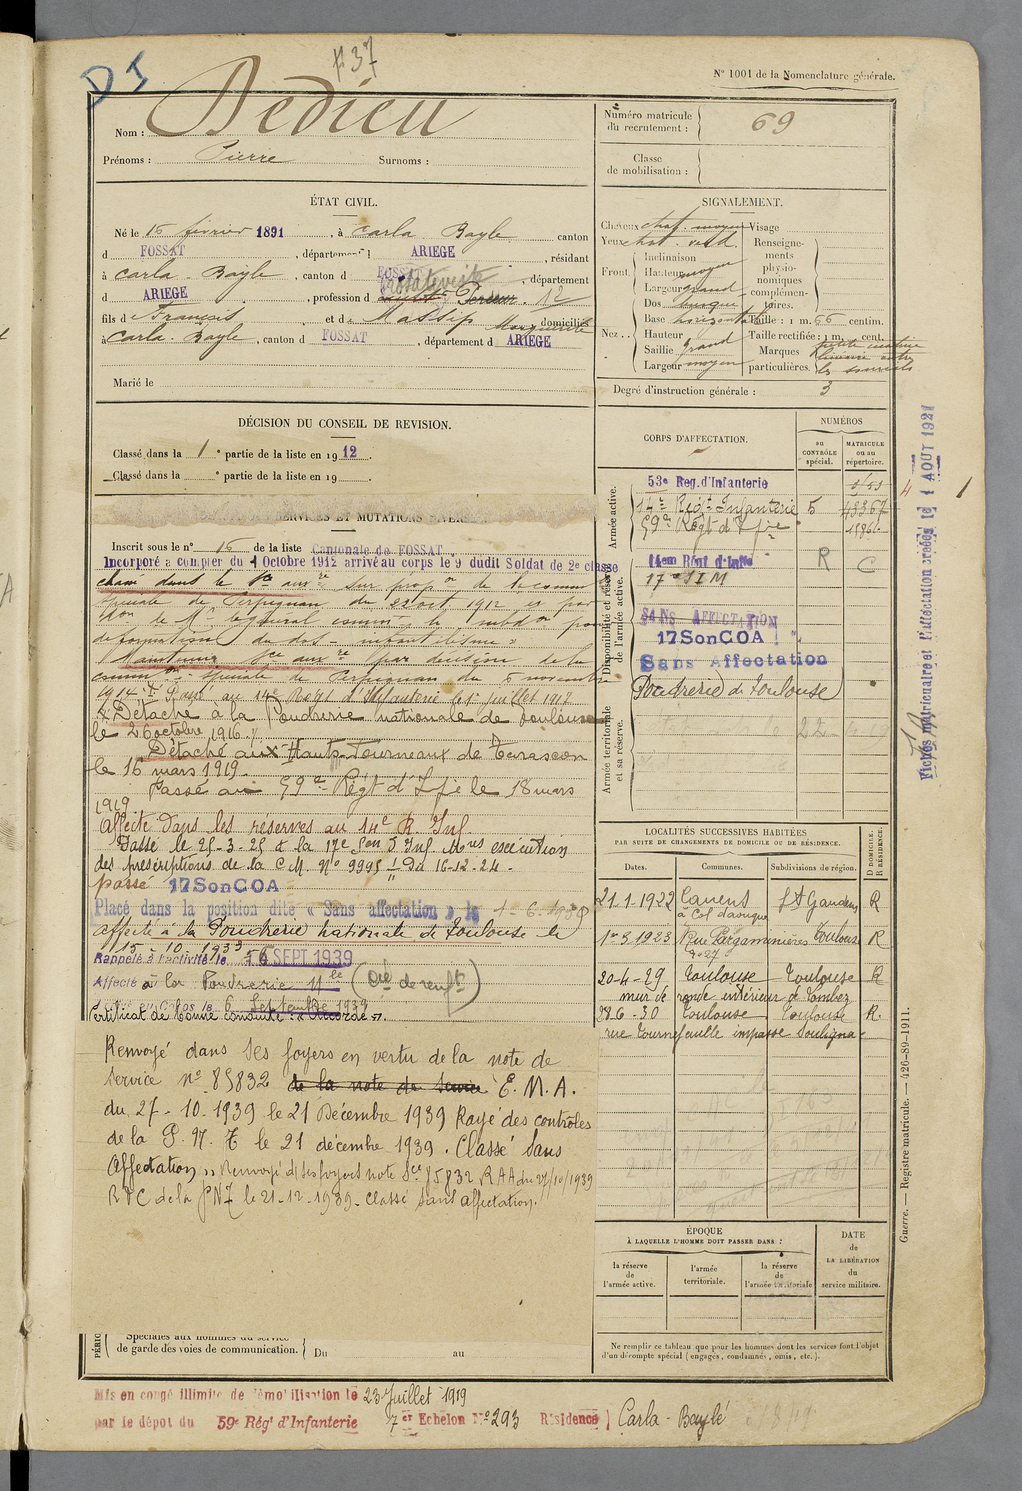 DJ
#37
N° 1001 de la Nomenclature générale.
Nom : Dedieu
Prénoms : Pierre Surnoms :
Numéro matricule
du recrutement : 69
Classe
de mobilisation :
ÉTAT CIVIL.
Né le 15 février 1891, à Carla-Bayle canton
d FOSSAT, département d ARIEGE, résidant
à Carla-Bayle, canton d FOSSAT, département
d ARIEGE, profession d 12
fils d François et d Massip Marguerite domiciliés
à Carla-Bayle, canton d FOSSAT, département d ARIEGE
Marié le
SIGNALEMENT.
Cheveux chat. moyen Visage
Yeux chat. verd.
Renseignements physionomiques complémentaires.
Front. Inclinaison
Hauteur moyen
Largeur grand
Nez... Dos busqué
Base horizontale Taille : 1 m. 66 centim.
Hauteur Taille rectifiée : 1 m. cent.
Saillie grand Marques particulières. petite cicatrice
linéaire entre
les sourcils
Largeur moyen
Degré d'instruction générale : 3
DÉCISION DU CONSEIL DE REVISION.
Classé dans la 1e partie de la liste en 1912.
Classé dans la e partie de la liste en 19 .
CORPS D'AFFECTATION.
NUMÉROS
au CONTRÔLE spécial.
MATRICULE ou au répertoire.
Armée active.
53e Reg. d'Infanterie
14e Régt Infanterie 5 43367
59e Régt d'Ifie
Disponibilité et réserve de l'armée active.
14em Rént d'Inffe R C
17e SIM
SANS AFFECTATION
17SonCOA
Sans Affectation
Poudrerie de Toulouse
Armée territoriale et sa réserve.
SERVICES ET MUTATIONS DIVERSES
Inscrit sous le n° 15 de la liste Cantonale de FOSSAT
Incorporé à compter du 1 Octobre 1912 arrivé au corps le 9 dudit Soldat de 2e classe
classé dans le Sce auxre sur propon de la comm
spéciale de Perpignan du 22 oct 1912 et par
don de Mr le général commt la subdon pour
déformation du dos
Maintenu Sce auxre par décision de la
common spéciale de Perpignan du 5 novembre
1914. Passé au 14e Regt d'Infanterie le 1er juillet 1917
Détaché à la Poudrerie nationale de Toulouse
le 26 octobre 1916.
Détaché aux Hauts-Fourneaux de Tarascon
le 16 mars 1919.
Passé au 59e Régt d'Ifie le 18 mars
1919
Affecté dans les réserves au 14e R. Inf.
Passé le 25-3-25 à la 17e Son S Inf. Mres exécution
des prescriptions de la C M. N° 9995 I/11 Du 16-12-24.
passé 17SonCOA
Placé dans la position dite « Sans affectation » le 1-6-1938
affecté à la Poudrerie nationale de Toulouse le
15-10-1933
Rappelé à l'activité le 6 SEPT 1939
Affecté à la Poudrerie Nle
Arrivé au Corps le 6 Septembre 1939
Certificat de bonne conduite : « Accordé ».
Renvoyé dans ses foyers en vertu de la note de
service n° 85832 de la note de service E. M. A.
du 27-10-1939 le 21 Décembre 1939 Rayé des contrôles
de la P. N. T le 21 décembre 1939. Classé Sans
Affectation » Renvoyé ds ses foyers note Sce 85832 RAA du 27/10/1939
RDC de la PNT le 21-12-1939. Classé sans affectation.
LOCALITÉS SUCCESSIVES HABITÉES
PAR SUITE DE CHANGEMENTS DE DOMICILE OU DE RÉSIDENCE.
Dates. Communes. Subdivisions de région. D DOMICILE. R RÉSIDENCE.
21-1-1922 St Gaudens R
1er 3 1923 Rue Pargaminières Toulouse R
n° 27
20-4-29 Toulouse Toulouse R
28-6-30 Toulouse Toulouse R.
rue Tournefeuille impasse
ÉPOQUE
À LAQUELLE L'HOMME DOIT PASSER DANS :
la réserve de l'armée active.
l'armée territoriale.
la réserve de l'armée territoriale
DATE de LA LIBÉRATION du service militaire.
Ne remplir ce tableau que pour les hommes dont les services font l'objet
d'un décompte spécial (engagés, condamnés, omis, etc.).
Spéciales aux hommes du service
de garde des voies de communication. Du au
Mis en congé illimité de démobilisation le 23 Juillet 1919
par le dépôt du 59e Rég' d'Infanterie 7er Echelon N° 293 Résidence Carla-Baylé
Fiches matriculaire et d'affectation créées le 1 AOUT 1921
Guerre. — Registre matricule. — 426-89-1911.